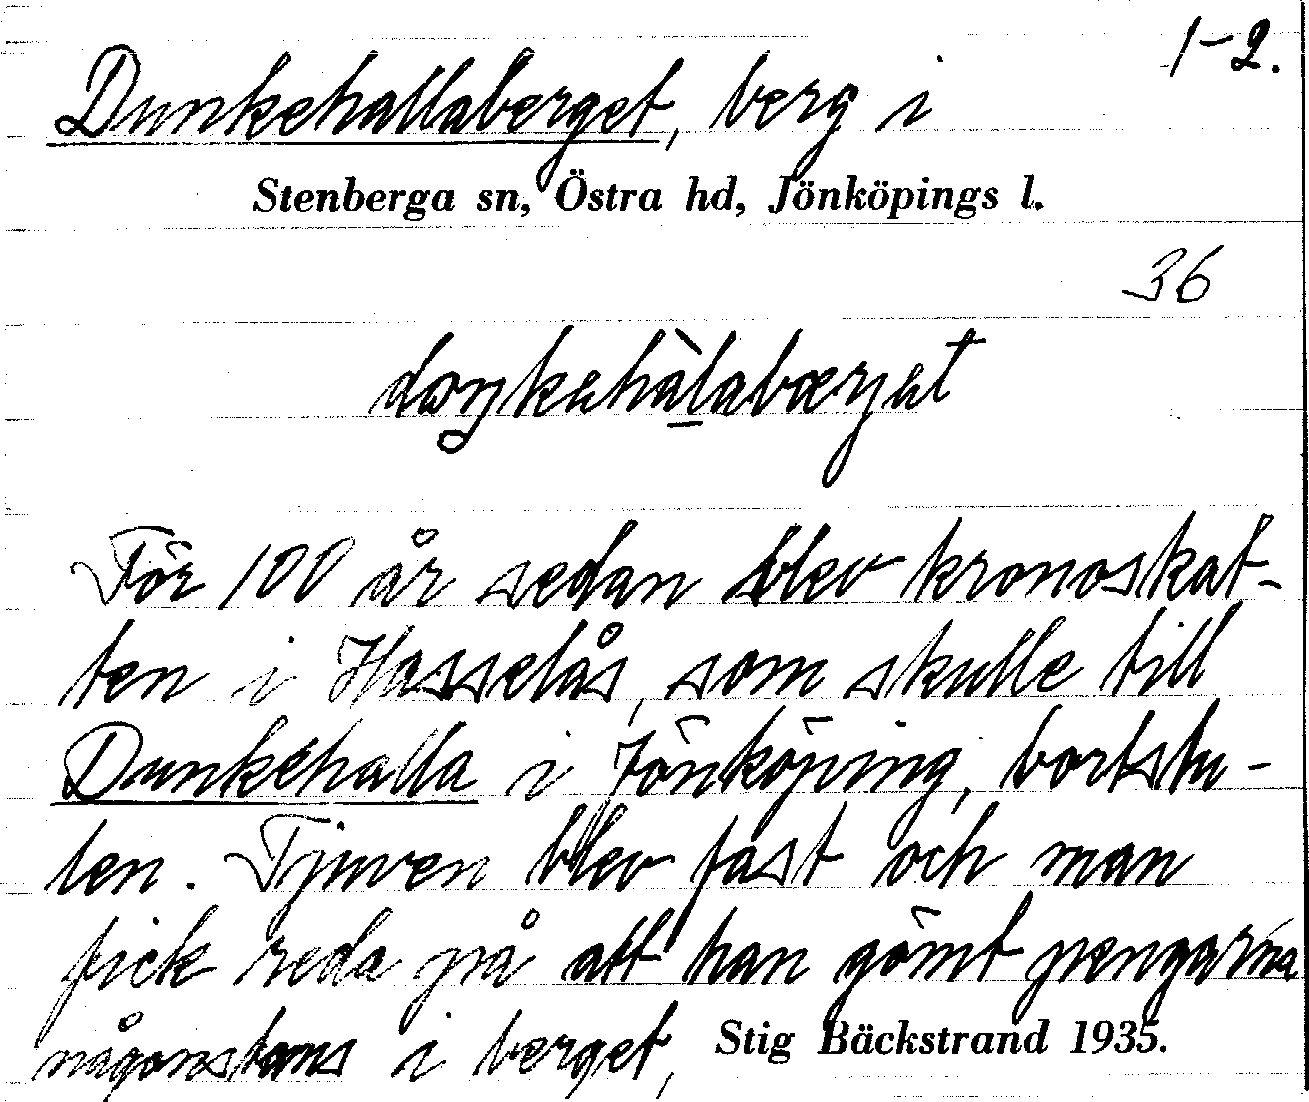 1-2.
Dunkehallaberget, berg i
Stenberga sn, Östra hd, Jönköpings l.
36
För 100 år sedan blev kronoskat-
ten i Hasselås, som skulle till
Dunkehalla i Jönköping, bortstu-
len. Tjuven blev fast och man
fick reda på att han gömt pengarna
någonstans i berget,
Stig Bäckstrand 1935.